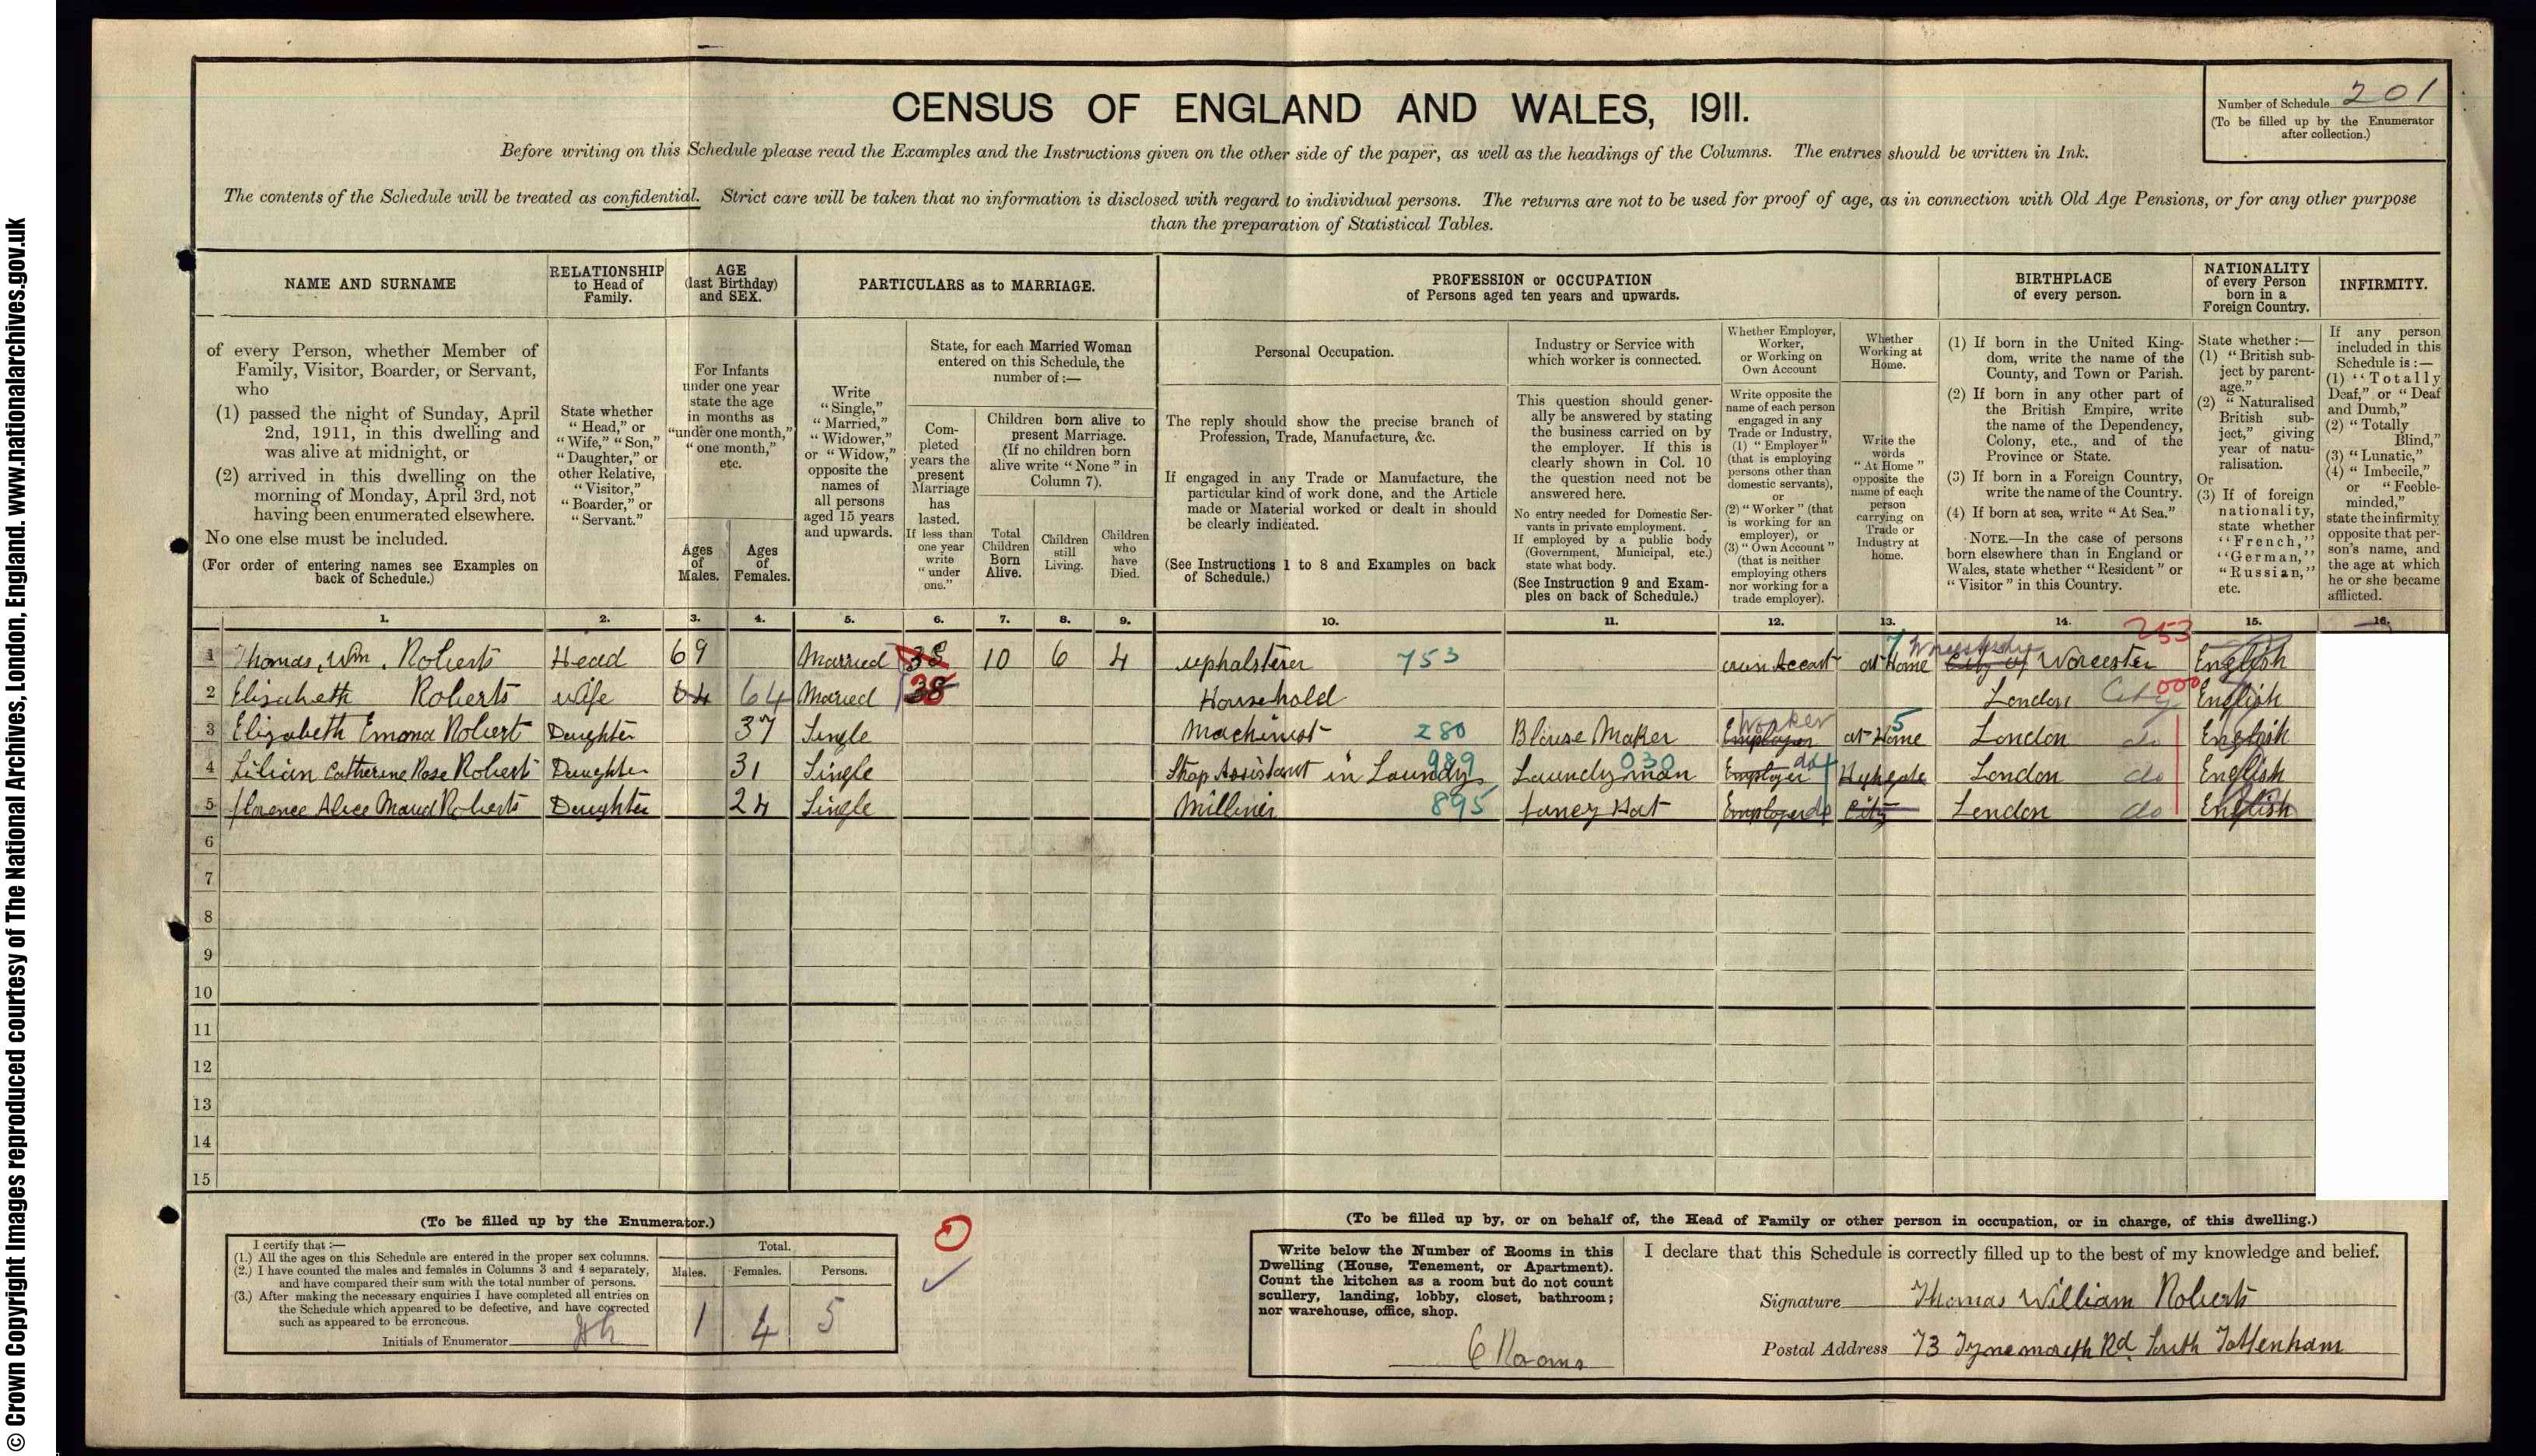 © Crown Copyright Images reproduced courtesy of The National Archives, London, England. www.nationalarchives.gov.uk
CENSUS OF ENGLAND AND WALES, 1911.
Number of Schedule 201
(To be filled up by the Enumerator
after collection.)
Before writing on this Schedule please read the Examples and the Instructions given on the other side of the paper, as well as the headings of the Columns. The entries should be written in Ink.
The contents of the Schedule will be treated as confidential. Strict care will be taken that no information is disclosed with regard to individual persons. The returns are not to be used for proof of age, as in connection with Old Age Pensions, or for any other purpose
than the preparation of Statistical Tables.
NAME AND SURNAME
of every Person, whether Member of
Family, Visitor, Boarder, or Servant,
who
(1) passed the night of Sunday, April
2nd, 1911, in this dwelling and
was alive at midnight, or
(2) arrived in this dwelling on the
morning of Monday, April 3rd, not
having been enumerated elsewhere.
No one else must be included.
(For order of entering names see Examples on
back of Schedule.)
RELATIONSHIP
to Head of
Family.
State whether
"Head," or
"Wife," "Son,"
"Daughter," or
other Relative,
"Visitor,"
"Boarder," or
"Servant."
AGE
(last Birthday)
and SEX.
For Infants
under one year
state the age
in months as
"under one month,"
"one month,"
etc.
Ages
of
Males.
Ages
of
Females.
PARTICULARS as to MARRIAGE.
Write
"Single,"
"Married,"
"Widower,"
or "Widow,"
opposite the
names of
all persons
aged 15 years
and upwards.
State, for each Married Woman
entered on this Schedule, the
number of :—
Com-
pleted
years the
present
Marriage
has
lasted.
If less than
one year
write
"under
one."
Children born alive to
present Marriage.
(If no children born
alive write "None" in
Column 7).
Total
Children
Born
Alive.
Children
still
Living.
Children
who
have
Died.
PROFESSION or OCCUPATION
of Persons aged ten years and upwards.
Personal Occupation.
The reply should show the precise branch of
Profession, Trade, Manufacture, &c.
If engaged in any Trade or Manufacture, the
particular kind of work done, and the Article
made or Material worked or dealt in should
be clearly indicated.
(See Instructions 1 to 8 and Examples on back
of Schedule.)
Industry or Service with
which worker is connected.
This question should gener-
ally be answered by stating
the business carried on by
the employer. If this is
clearly shown in Col. 10
the question need not be
answered here.
No entry needed for Domestic Ser-
vants in private employment.
If employed by a public body
(Government, Municipal, etc.)
state what body.
(See Instruction 9 and Exam-
ples on back of Schedule.)
Whether Employer,
Worker,
or Working on
Own Account
Write opposite the
name of each person
engaged in any
Trade or Industry,
(1) "Employer"
(that is employing
persons other than
domestic servants),
or
(2) "Worker" (that
is working for an
employer), or
(3) "Own Account"
(that is neither
employing others
nor working for a
trade employer).
Whether
Working at
Home.
Write the
words
"At Home"
opposite the
name of each
person
carrying on
Trade or
Industry at
home.
BIRTHPLACE
of every person.
(1) If born in the United King-
dom, write the name of the
County, and Town or Parish.
(2) If born in any other part of
the British Empire, write
the name of the Dependency,
Colony, etc., and of the
Province or State.
(3) If born in a Foreign Country,
write the name of the Country.
(4) If born at sea, write "At Sea."
NOTE.—In the case of persons
born elsewhere than in England or
Wales, state whether "Resident" or
"Visitor" in this Country.
NATIONALITY
of every Person
born in a
Foreign Country.
State whether :—
(1) "British sub-
ject by parent-
age."
(2) "Naturalised
British sub-
ject," giving
year of natu-
ralisation.
Or
(3) If of foreign
nationality,
state whether
"French,"
"German,"
"Russian,"
etc.
INFIRMITY.
If any person
included in this
Schedule is :—
(1) "Totally
Deaf," or "Deaf
and Dumb,"
(2) "Totally
Blind,"
(3) "Lunatic,"
(4) "Imbecile,"
or "Feeble-
minded,"
state the infirmity
opposite that per-
son's name, and
the age at which
he or she became
afflicted.
1. 2. 3. 4. 5. 6. 7. 8. 9. 10. 11. 12. 13. 14. 15. 16.
253
1 Thomas, Wm, Roberts Head 69 Married 38 10 6 4 upholsterer 753 own Account at Home 7 Worcestershire City of Worcester English
2 Elizabeth Roberts wife 64 64 Maried 38 Household London City 000 English
3 Elizabeth Emona Robert Daughter 37 Single Machinist 280 Blouse Maker Employer Worker at Home 5 London do English
4 Lilian Catherine Rose Robert Daughter 31 Single Shop Assistant in Laundry 989 Laundryman 030 Employer do Hyhgate London do English
5 florence Alice Maud Roberts Daughter 24 Single Milliner 895 fancy Hat Employer do City London do English
6
7
8
9
10
11
12
13
14
15
(To be filled up by the Enumerator.)
I certify that :—
(1.) All the ages on this Schedule are entered in the proper sex columns.
(2.) I have counted the males and females in Columns 3 and 4 separately,
and have compared their sum with the total number of persons.
(3.) After making the necessary enquiries I have completed all entries on
the Schedule which appeared to be defective, and have corrected
such as appeared to be erroneous.
Initials of Enumerator
Total.
Males. Females. Persons.
1 4 5
0
(To be filled up by, or on behalf of, the Head of Family or other person in occupation, or in charge, of this dwelling.)
Write below the Number of Rooms in this
Dwelling (House, Tenement, or Apartment).
Count the kitchen as a room but do not count
scullery, landing, lobby, closet, bathroom;
nor warehouse, office, shop.
6 Rooms
I declare that this Schedule is correctly filled up to the best of my knowledge and belief.
Signature Thomas William Roberts
Postal Address 73 Tynemouth Rd South Tottenham